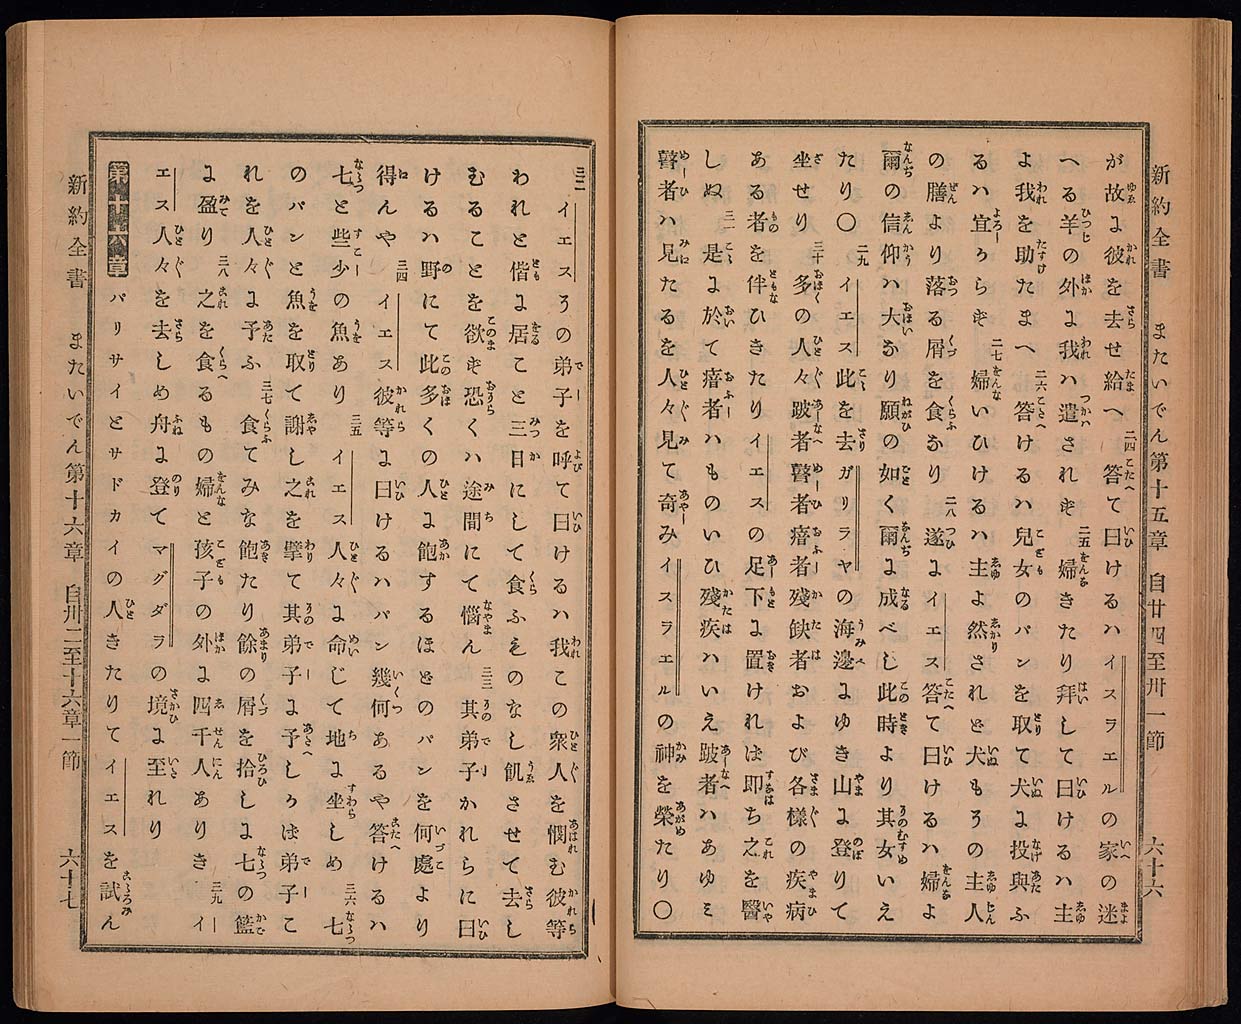 新約全書　またいでん第十五章　自廿四至卅一節　六十六
が故に彼を去せ給へ 二四 答て曰けるハイスラエルの家の迷
へる羊の外に我ハ遣されず 二五 婦きたり拜して曰けるハ主
よ我を助たまへ 二六 答けるハ兒女のパンを取て犬に投與ふ
るハ宜からず 二七 婦いひけるハ主よ然されど犬もその主人
の膳より落る屑を食なり 二八 遂にイエス答て曰けるハ婦よ
爾の信仰ハ大なり願の如く爾に成べし此時より其女いえ
たり〇 二九 イエス此を去ガリラヤの海邊にゆき山に登りて
坐せり 三十 多の人々跛者瞽者瘖者殘缺者および各樣の疾病
ある者を伴ひきたりイエスの足下に置ければ即ち之を醫
しぬ 三一 是に於て瘖者ハものいひ殘疾ハいえ跛者ハあゆミ
瞽者ハ見たるを人々見て奇みイスラエルの神を榮たり〇
三二 イエスその弟子を呼て曰けるハ我この衆人を憫む彼等
われと偕に居こと三日にして食ふものなし飢させて去し
むることを欲ず恐くハ途間にて惱ん 三三 其弟子かれらに曰
けるハ野にて此多くの人に飽するほどのパンを何處より
得んや 三四 イエス彼等に曰けるハパン幾何あるや答けるハ
七と些少の魚あり 三五 イエス人々に命じて地に坐しめ 三六 七
のパンと魚を取て謝し之を擘て其弟子に予しかば弟子こ
れを人々に予ふ 三七 食てみな飽たり餘の屑を拾しに七の籃
に盈り 三八 之を食るもの婦と孩子の外に四千人ありき 三九 イ
エス人々を去しめ舟に登てマグダラの境に至れり
第十六章 パリサイとサドカイの人きたりてイエスを試ん
新約全書　またいでん第十六章　自卅二至十六章一節　六十七